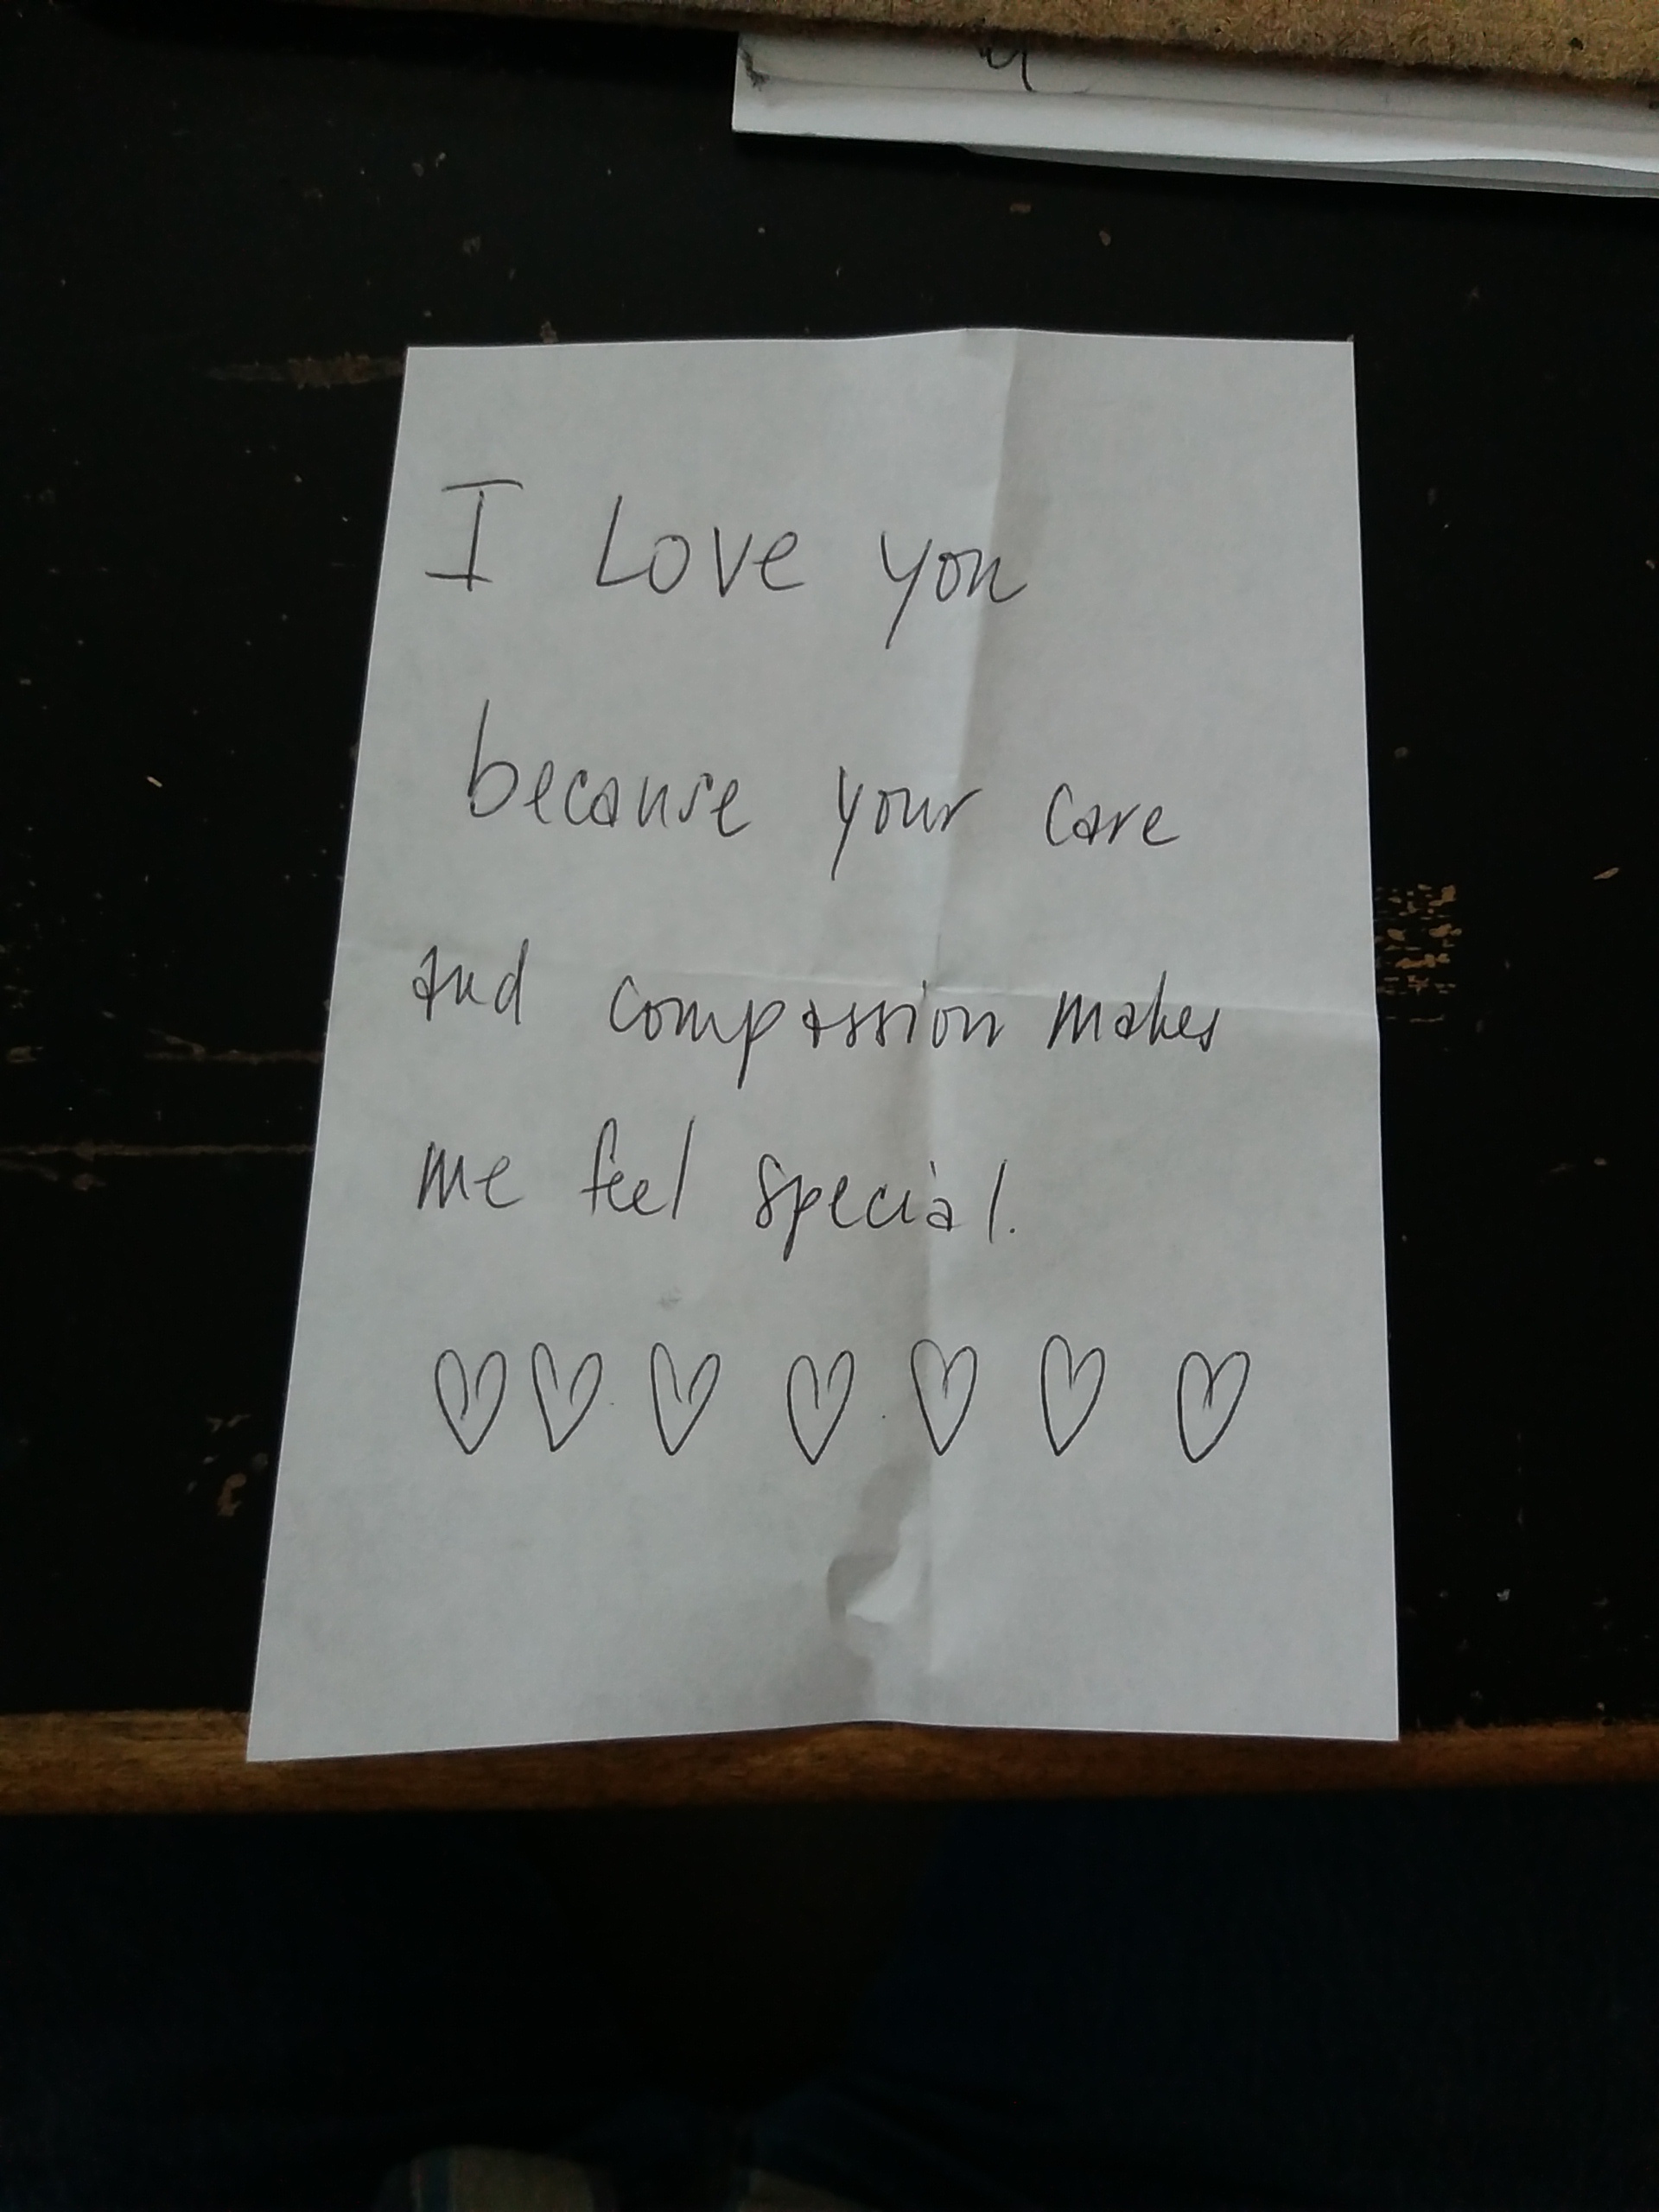 I Love you
because your care
and compassion makes
me feel special.
♡ ♡ ♡ ♡ ♡ ♡ ♡